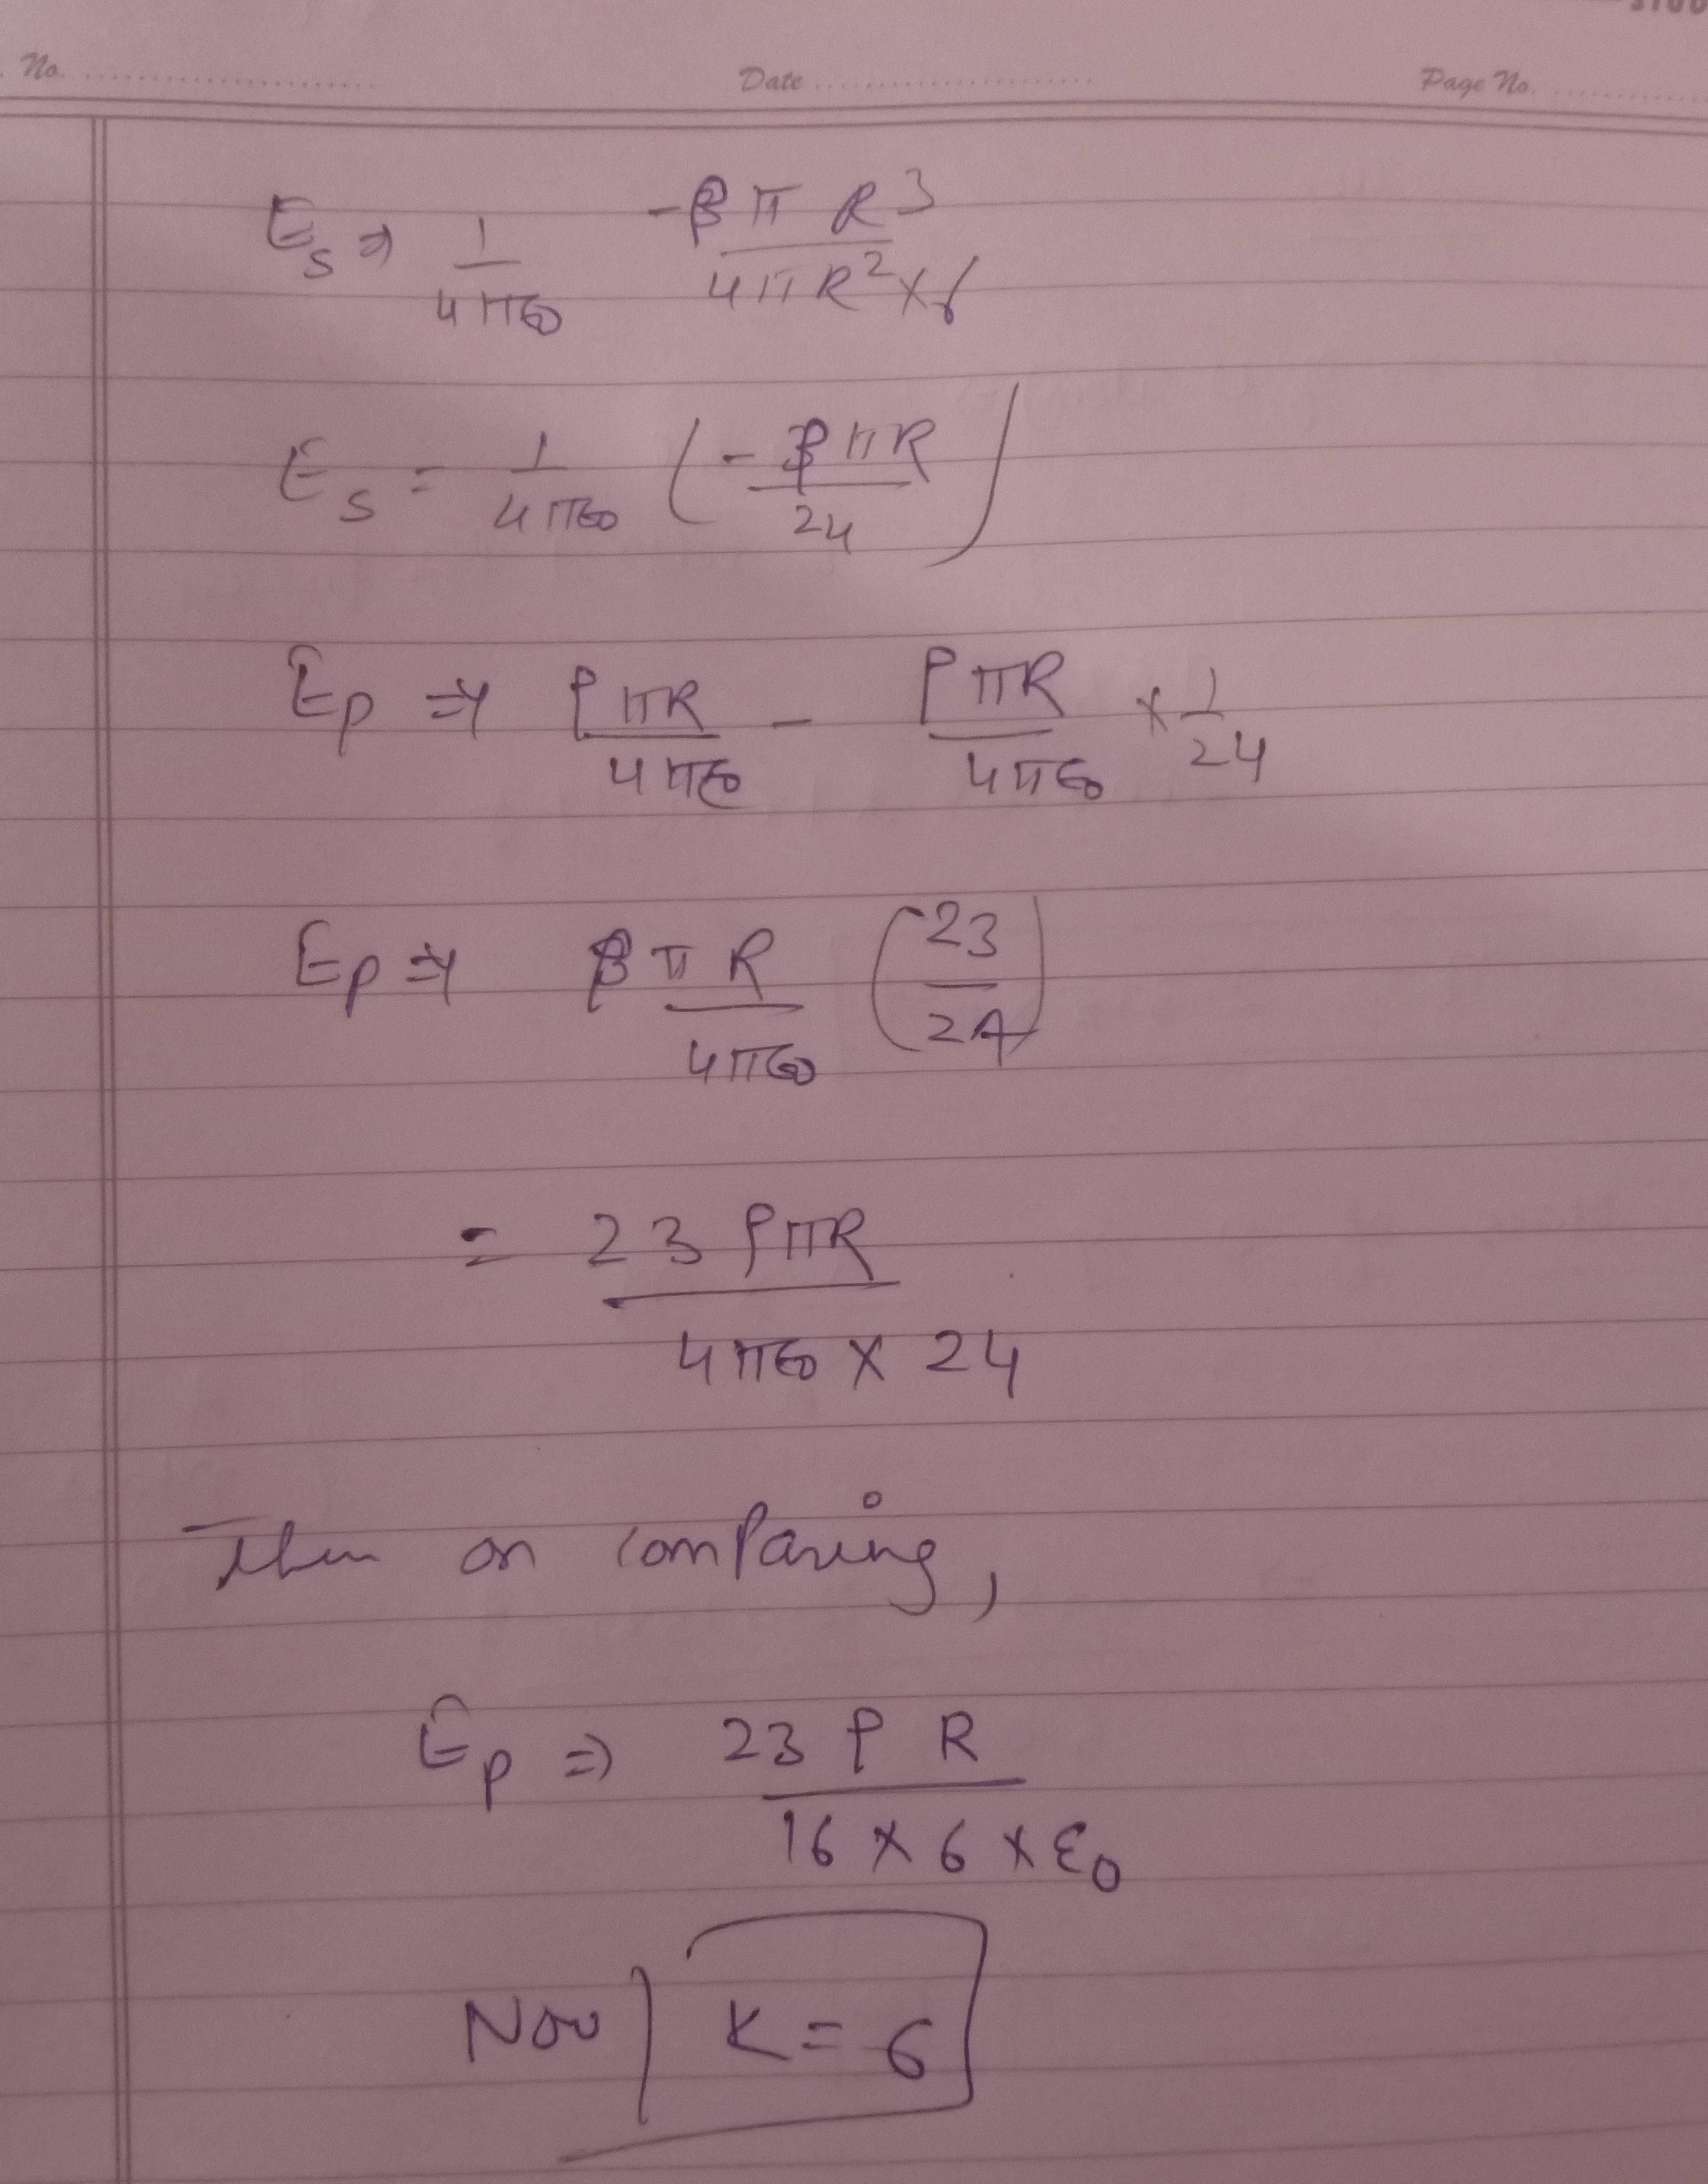 No. Date Page No.
Es ⇒ 1/4πε0 -ρπR³/4πR²×6
Es = 1/4πε0 (-ρπR/24)
Ep ⇒ ρπR/4πε0 - ρπR/4πε0 × 1/24
Ep ⇒ ρπR/4πε0 (23/24)
= 23ρπR/4πε0 × 24
Then on comparing,
Ep ⇒ 23ρR/16×6×ε0
Now K=6